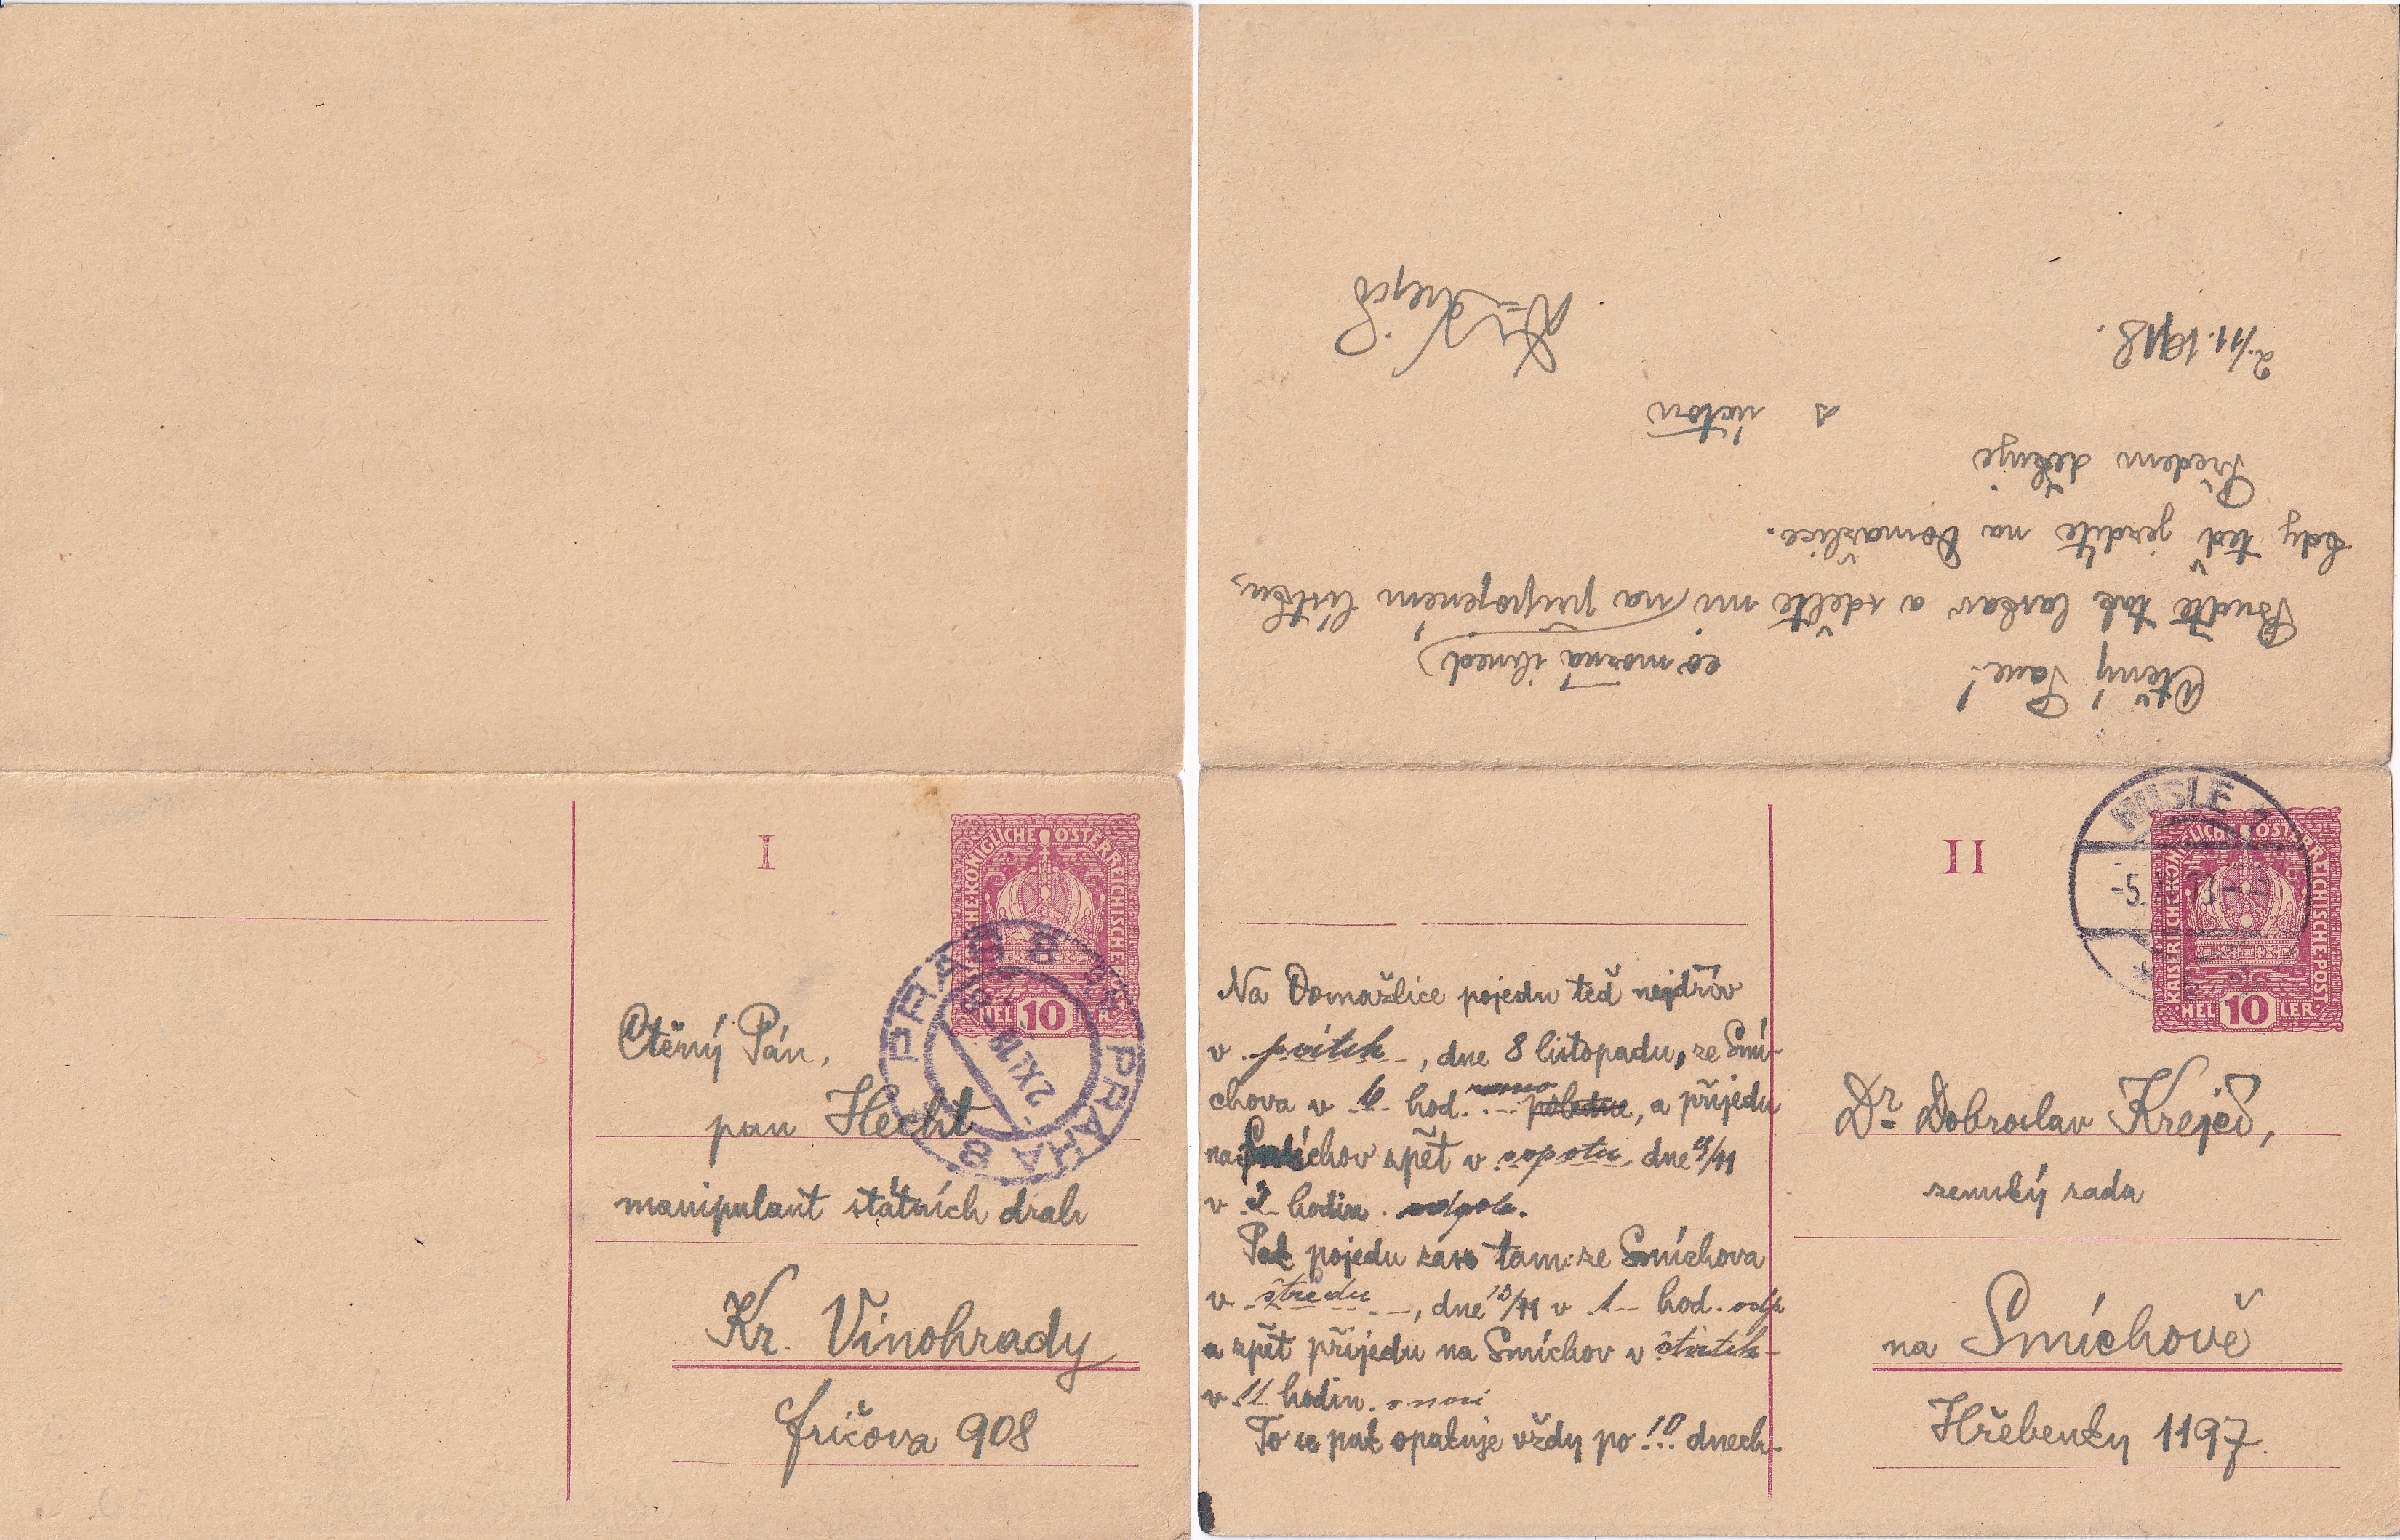 I
KAISERLICHE·KÖNIGLICHE ÖSTERREICHISCHE·POST
HELLER
10
PRAG 8
PRAHA 8
2 XI. 18
Ctěný Pán,
pan Hecht
manipulant státních drah
Kr. Vinohrady
Fričova 908
Ctěný Pane!
co možná ihned
Buďte tak laskav a sdělte mi na připojeném lístku,
kdy teď jezdíte na Domažlice.
Předem děkuje
s úctou
Dr Krejčí
2./11. 1918.
II
KAISERLICHE·KÖNIGLICHE ÖSTERREICHISCHE·POST
HELLER
10
NUSLE
-5.
Na Domažlice pojedu teď nejdřív
v pvítek, dne 8 listopadu, ze Smí-
chova v 6 hod. rano poledne, a přijedu
na Smíchov zpět v sopotu, dne 9/11
v 3 hodin. odpole.
Pak pojedu zase tam: ze Smíchova
v štredu, dne 13/11 v 1 hod. odp
a zpět přijedu na Smíchov v štvrtek
v 11 hodin. v noci
To se pak opakuje vždy po 10 dnech.
Dr Dobroslav Krejčí,
zemský rada
na Smíchově
Hřebenky 1197.